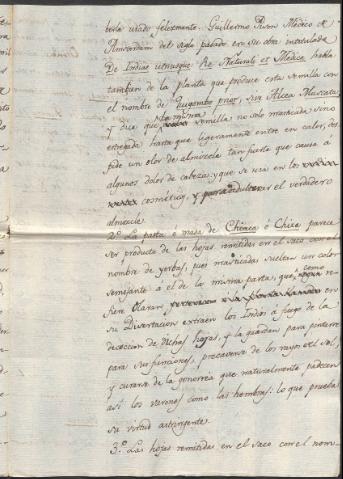 berla usado felizmente. Guillermo Pison Medico de
Amsterdam del siglo pasado en su obra intitulada
De Indiae utriusque Re Naturali et Medica, habla
tambien de la planta que produce esta semilla con
el nombre de Quigombo prior, sive Alcea Muscata;
y dice que la misma semilla no solo masticada sino
estregada hasta que ligeramente entre en calor, des-
pide un olor de almizcle tan fuerte que causa á
algunos dolor de cabeza; y que se usa en los
cosmeticos, y para adulterar el verdadero
almizcle.
2.º La pasta ó masa de Chica ó Chica parece
ser producto de las hojas remitidas en el saco con el
nombre de yerbas, pues masticadas sueltan un color
semejante á el de la misma pasta, que como re-
fiere Olaran en
su Disertacion extraen los Indios á fuego de la
decoccion de dichas hojas, y la guardan para pintarse
para sus funciones, precaverse de los rayos del sol,
y curarse de la gonorrea que naturalmente padecen
así los varones como las hembras: lo que prueba
su virtud astringente.
3.º Las hojas remitidas en el saco con el nom-